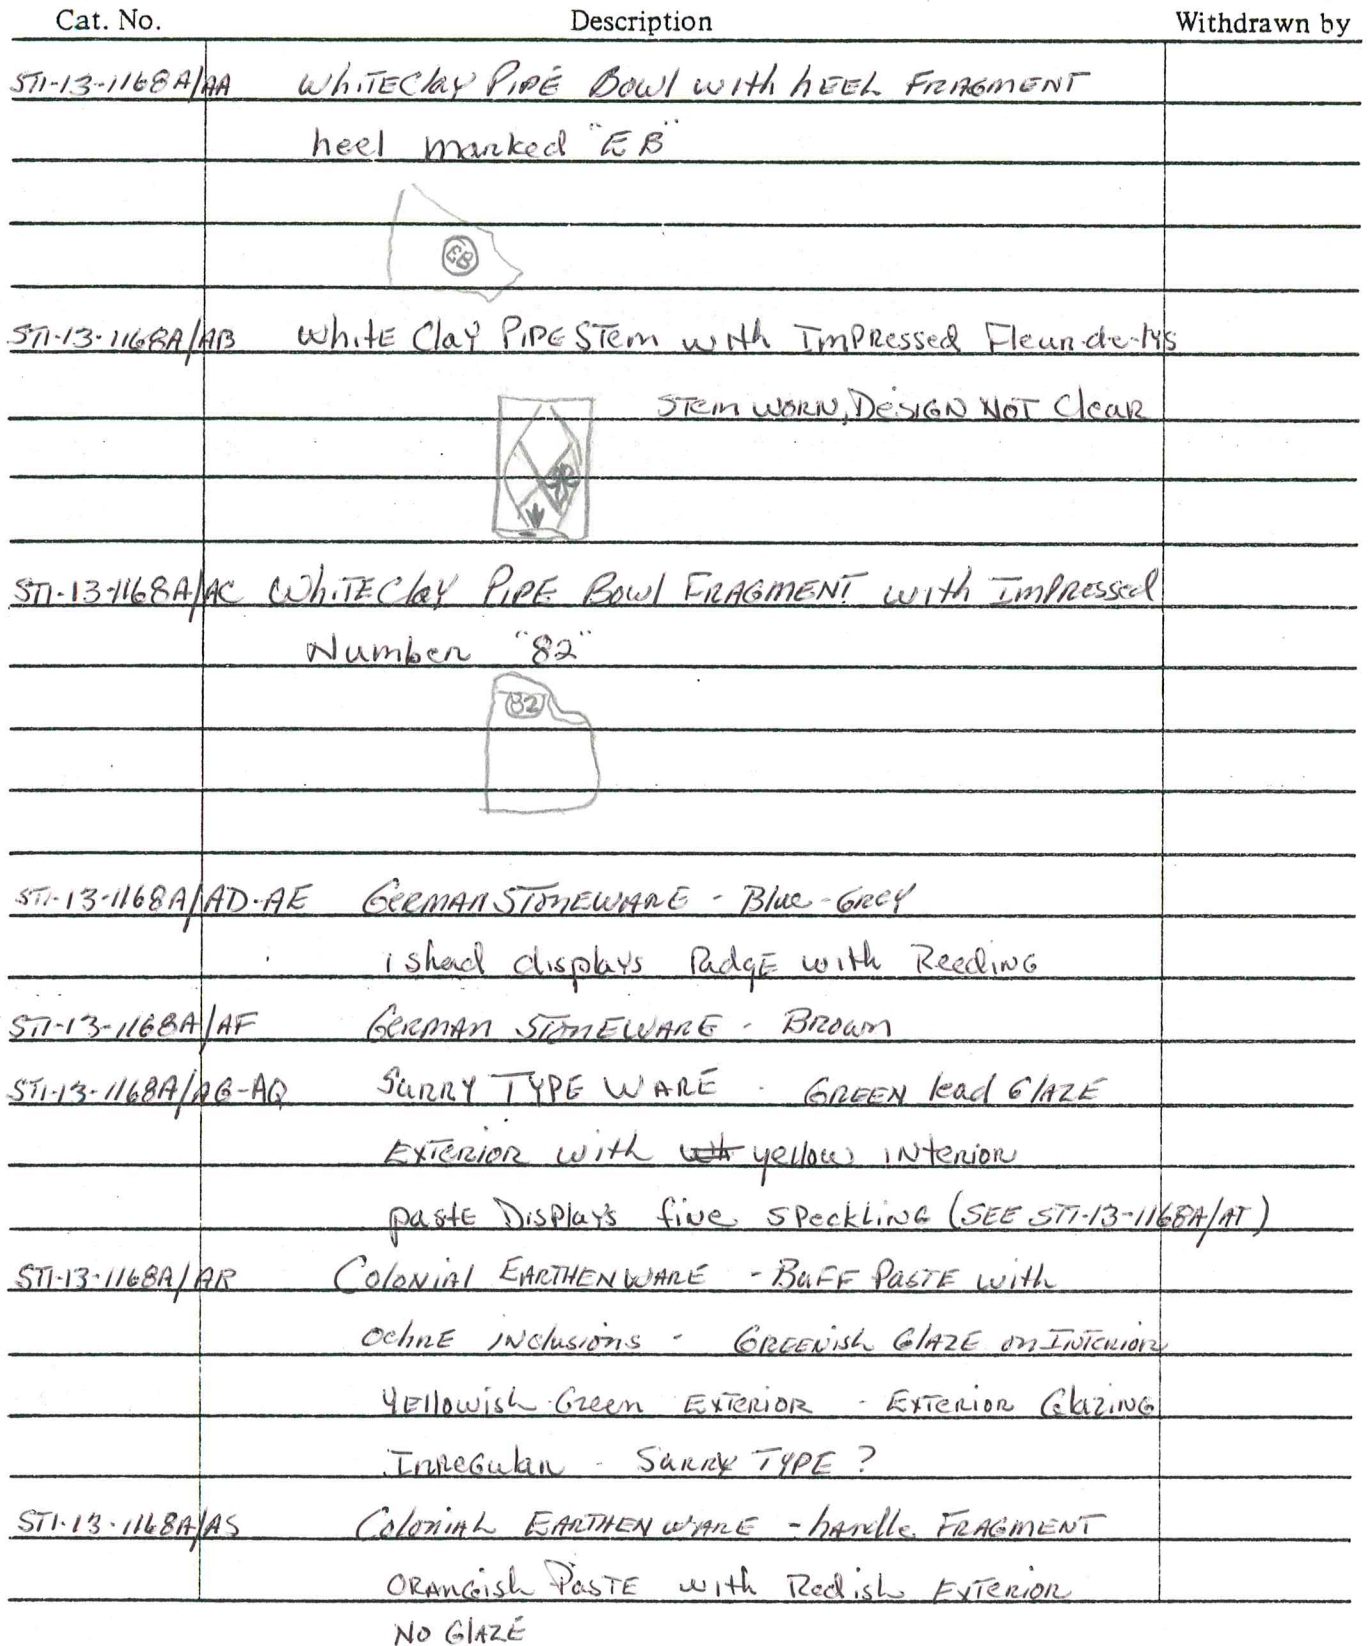 Cat. No. Description Withdrawn by
ST1-13-1168A/AA White Clay Pipe Bowl with heel Fragment
heel marked "EB"
EB
ST1-13-1168A/AB White Clay Pipe Stem with Impressed Fleur-de-lys
Stem worn, Design Not Clear
ST1-13-1168A/AC White Clay Pipe Bowl Fragment with Impressed
Number "82"
82
ST1-13-1168A/AD-AE German Stoneware - Blue-Grey
1 shed displays Padge with Reeding
ST1-13-1168A/AF German Stoneware - Brown
ST1-13-1168A/AG-AQ Surry Type Ware - Green lead Glaze
Exterior with yellow interior
paste Displays fine speckling (SEE ST1-13-1168A/AT)
ST1-13-1168A/AR Colonial Earthenware - Buff Paste with
Ochre inclusions - Greenish Glaze on Interior
Yellowish-Green Exterior - Exterior Glazing
Irregular - Surry Type?
ST1-13-1168A/AS Colonial Earthenware - handle Fragment
Orangish Paste with Redish Exterior
No Glaze